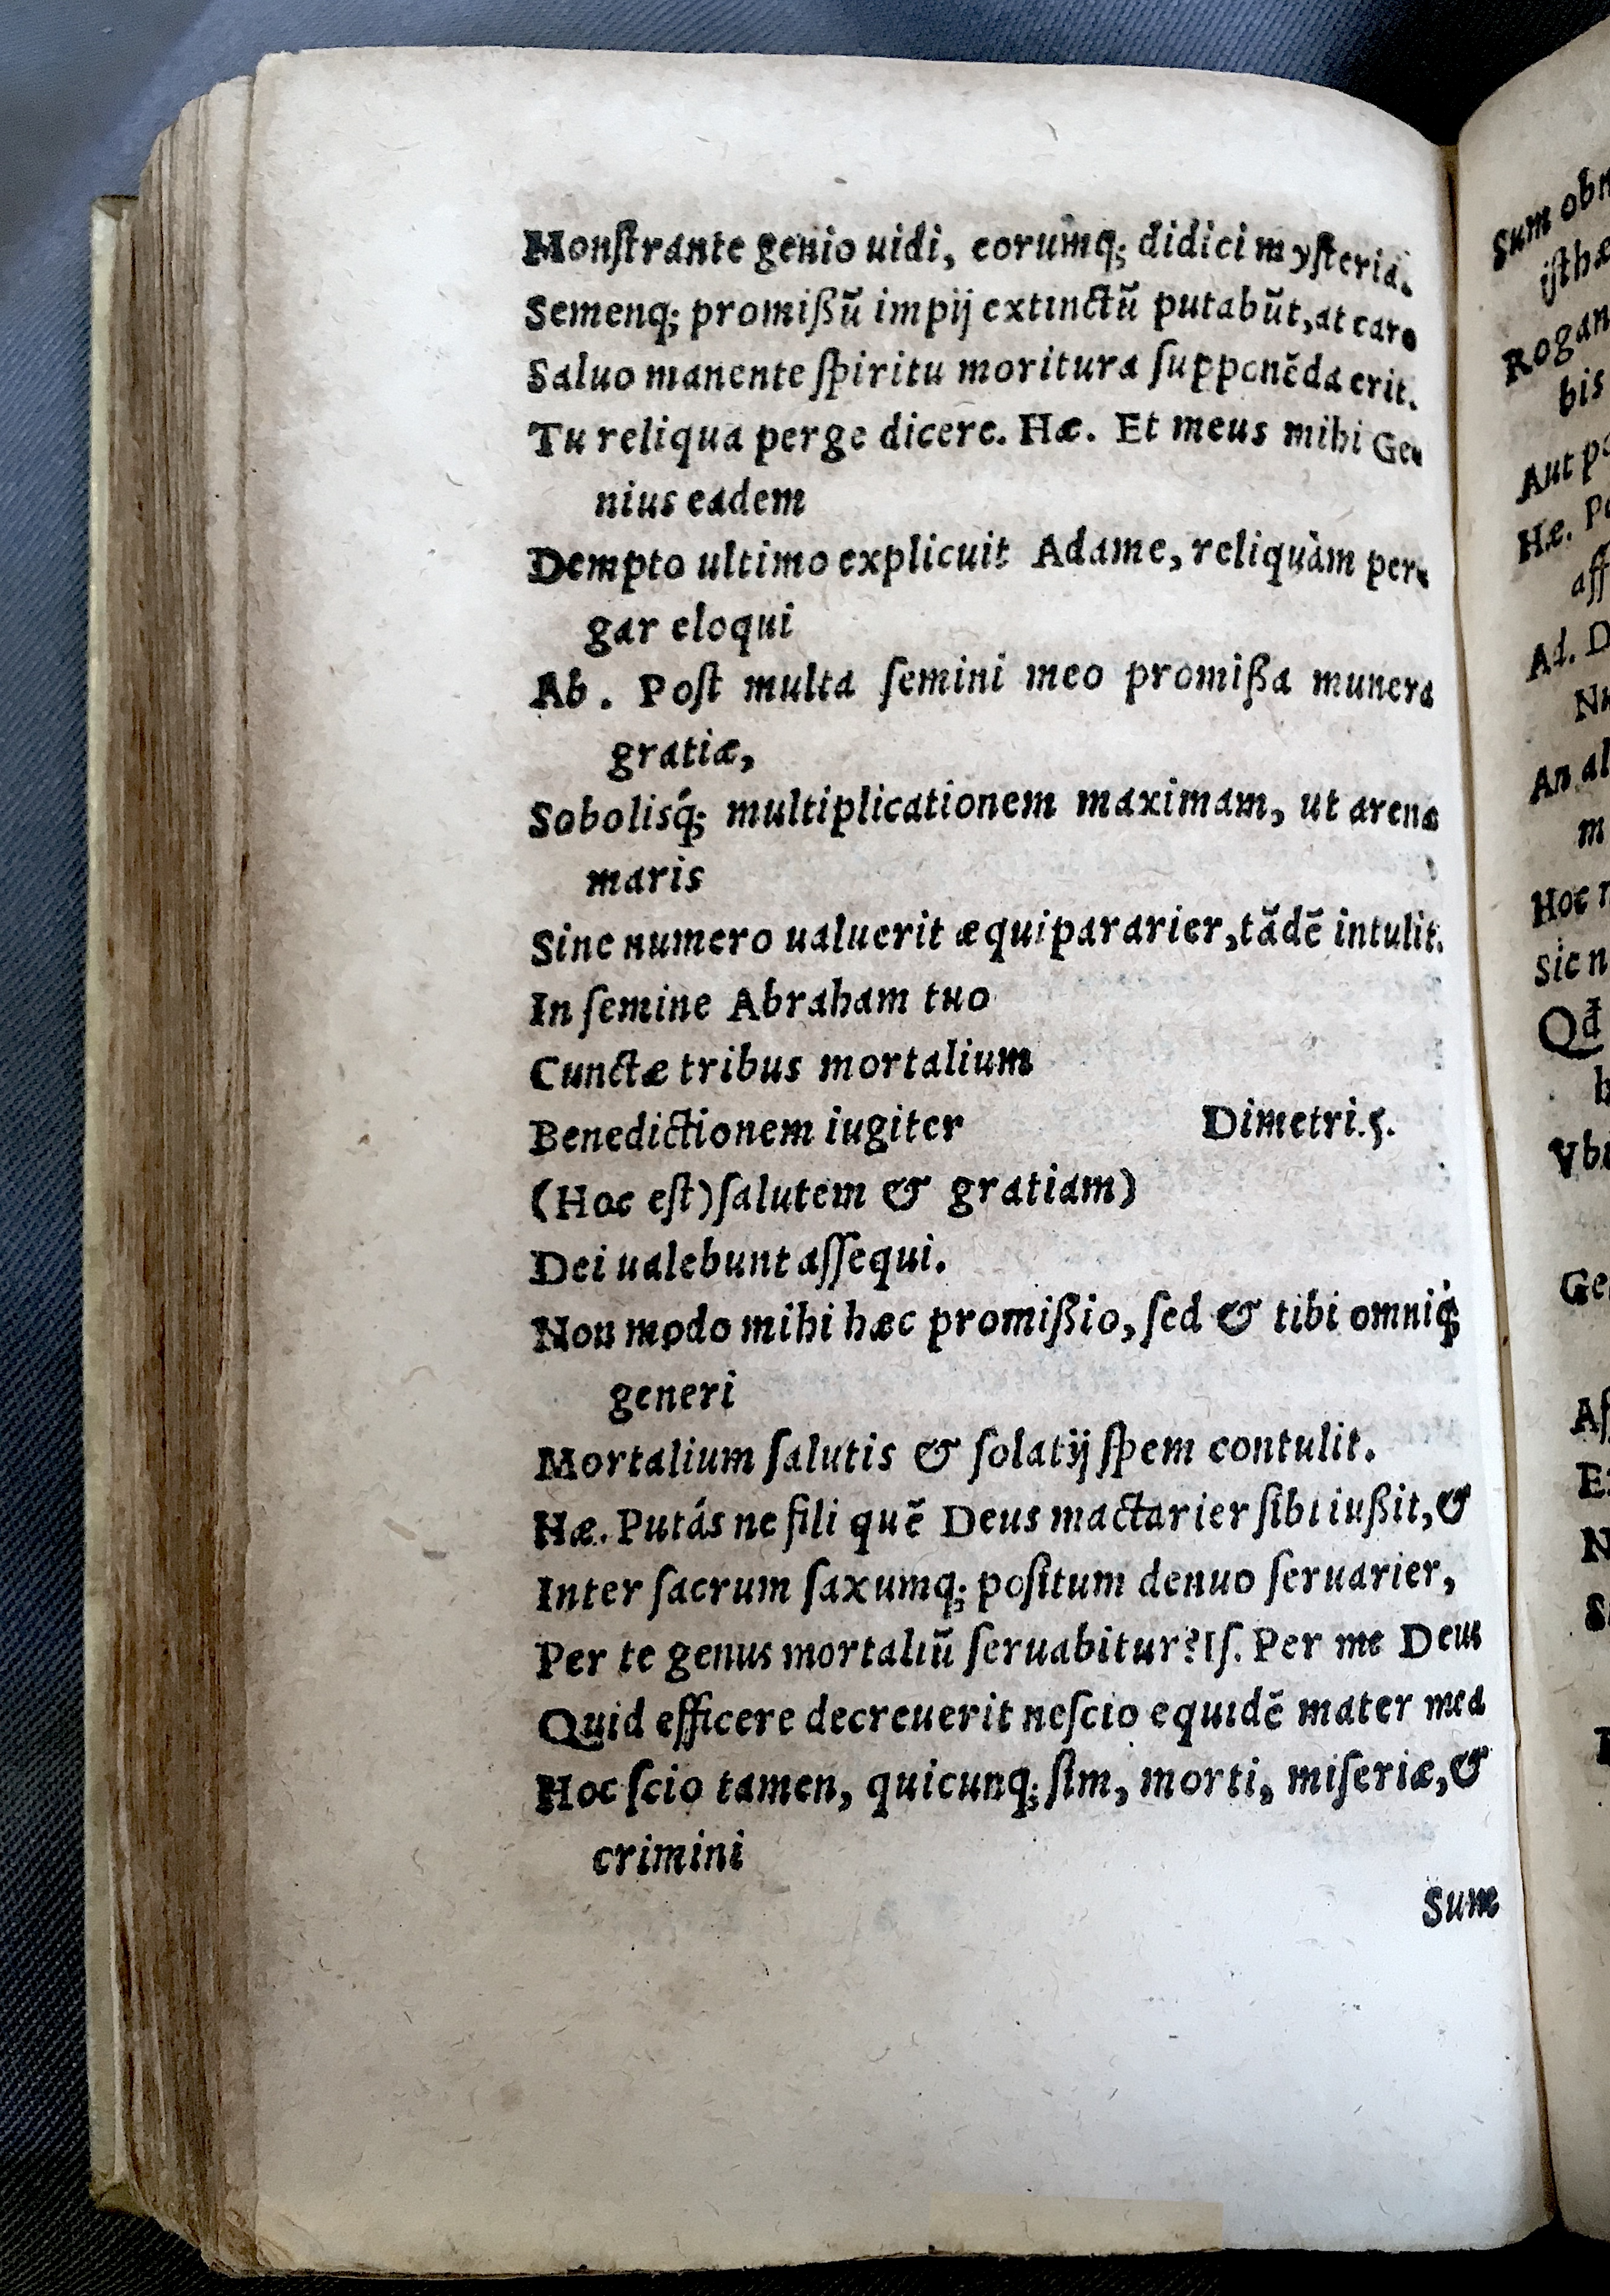 Monſtrante genio uidi, eorumq́; didici myſteria.
Semenq; promißũ impij extinctũ putabũt, at caro
Saluo manente ſpiritu moritura ſupponẽda erit.
Tu reliqua perge dicere. Hæ. Et meus mihi Ge-
nius eadem
Dempto ultimo explicuit Adame, reliquàm per-
gar eloqui
Ab. Poſt multa ſemini meo promißa munera
gratiæ,
Sobolisq́; multiplicationem maximam, ut arenæ
maris
Sine numero ualuerit æquipararier, tãdẽ intulit.
In ſemine Abraham tuo
Cunctæ tribus mortalium
Benedictionem iugiter Dimetri.5.
(Hoc eſt) ſalutem & gratiam)
Dei ualebunt aſſequi.
Non modo mihi hæc promißio, ſed & tibi omniq́;
generi
Mortalium ſalutis & ſolatij ſpem contulit.
Hæ. Putás ne fili quẽ Deus mactarier ſibi iußit, &
Inter ſacrum ſaxumq; poſitum denuo ſeruarier,
Per te genus mortaliũ ſeruabitur? Iſ. Per me Deus
Quid efficere decreuerit neſcio equidẽ mater mea
Hoc ſcio tamen, quicunq; ſim, morti, miſeriæ, &
crimini
Sum
Sum
iſthæ
Rogan
bis
Aut
Hæ.
Ad. D
An al
m
Hoc
Sic n
Qđ